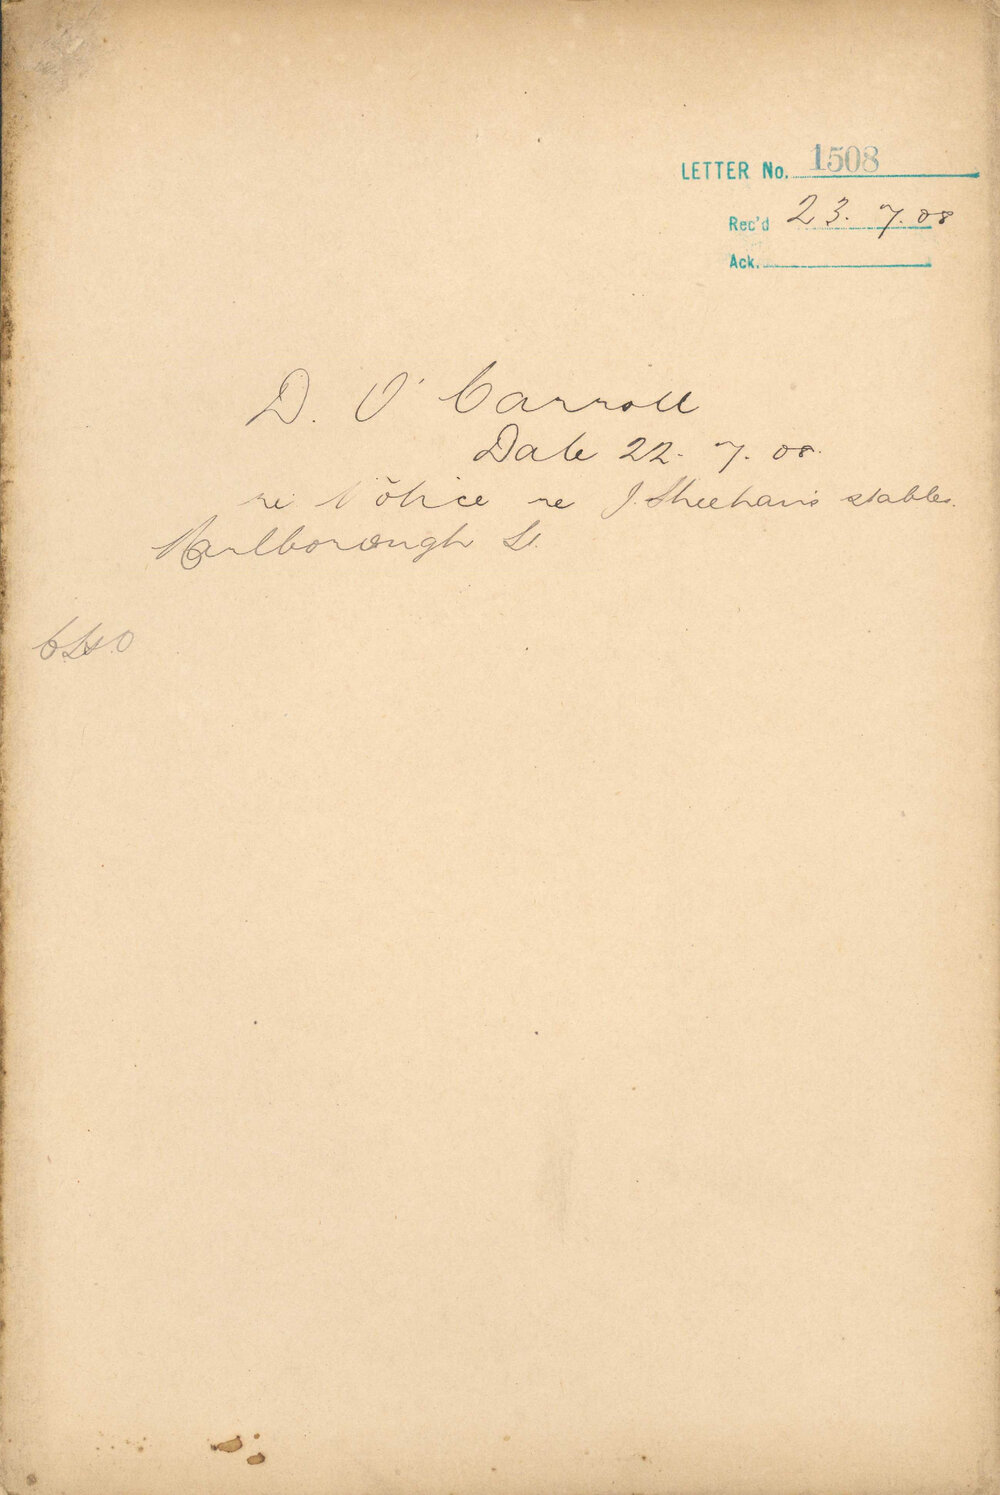 LETTER No. 1508
Rec'd 23. 7. 08
Ack.
D. O'Carroll
Date 22. 7. 08.
re Notice re J. Sheehan's stables.
Marlborough St.